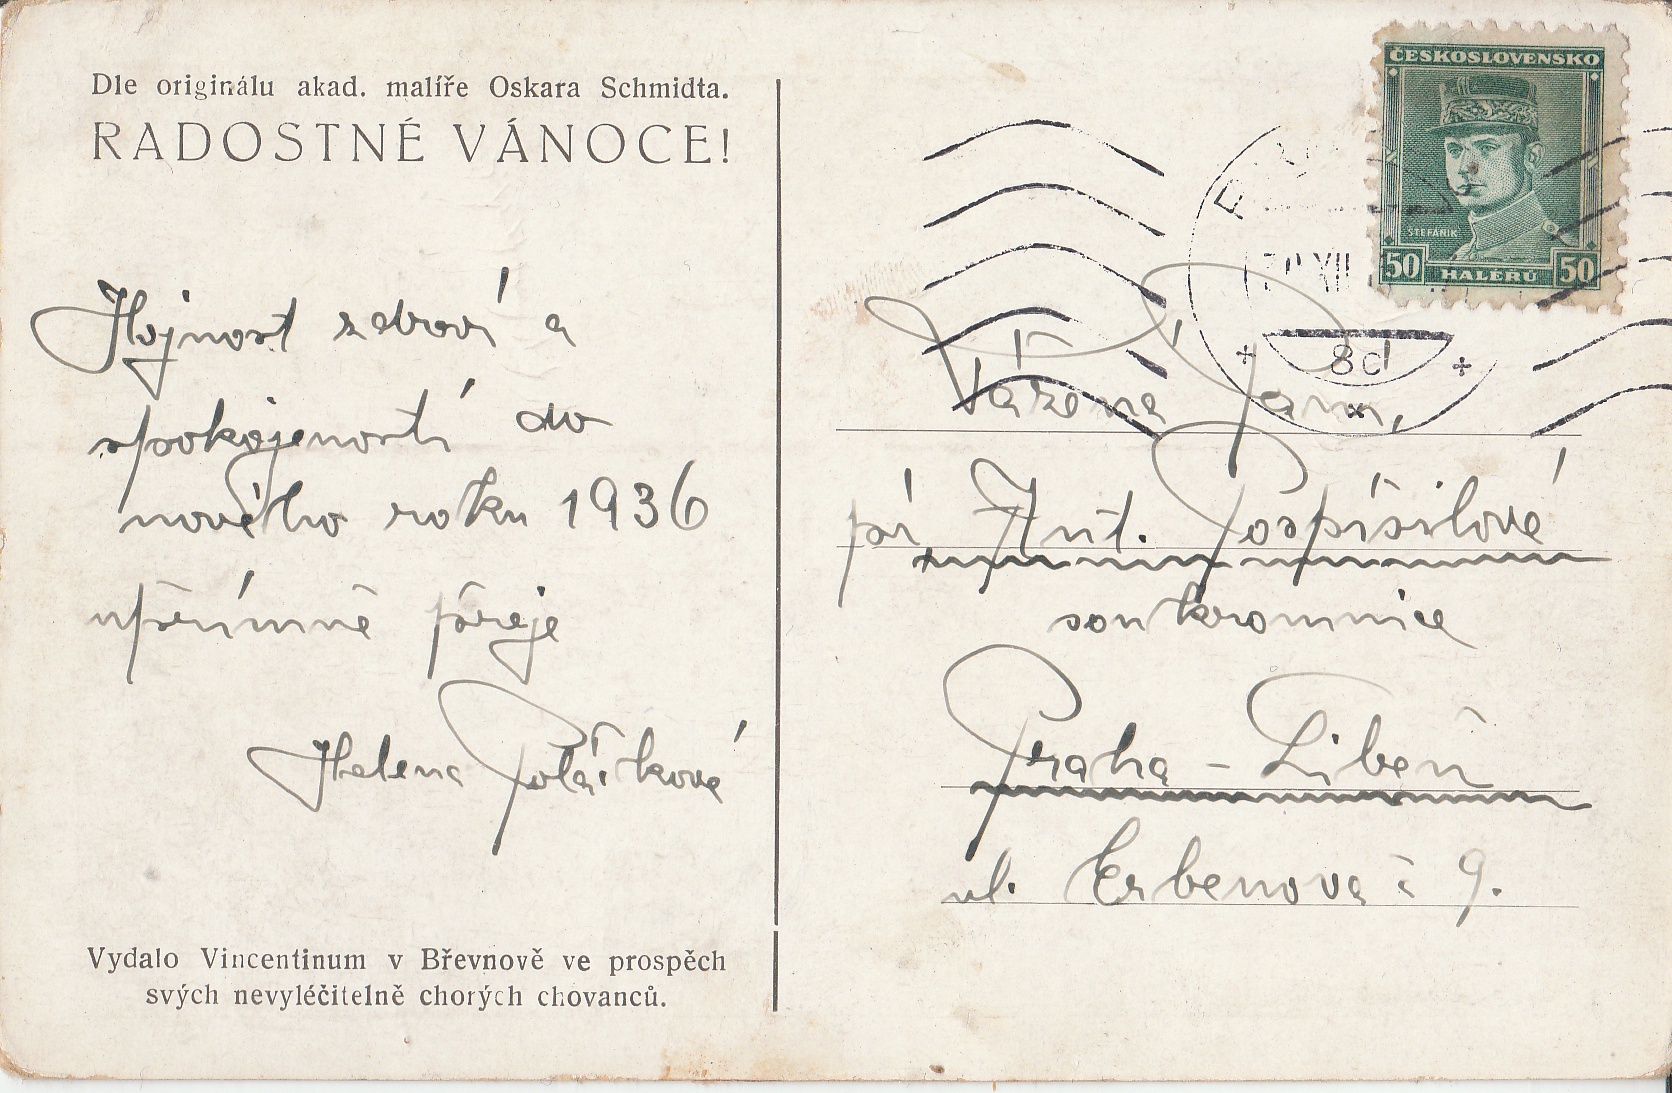 Dle originálu akad. malíře Oskara Schmidta.
RADOSTNÉ VÁNOCE!
Hojnost zdraví a
spokojenosti do
nového roku 1936
upřímně přeje
Helena Poláčková
Vydalo Vincentinum v Břevnově ve prospěch
svých nevyléčitelně chorých chovanců.
ČESKOSLOVENSKO
ŠTEFÁNIK
50 HALÉRŮ 50
XII
8d
Vážená paní,
pí Ant. Pospíšilová
soukromnice
Praha - Libeň
ul. Erbenova č 9.